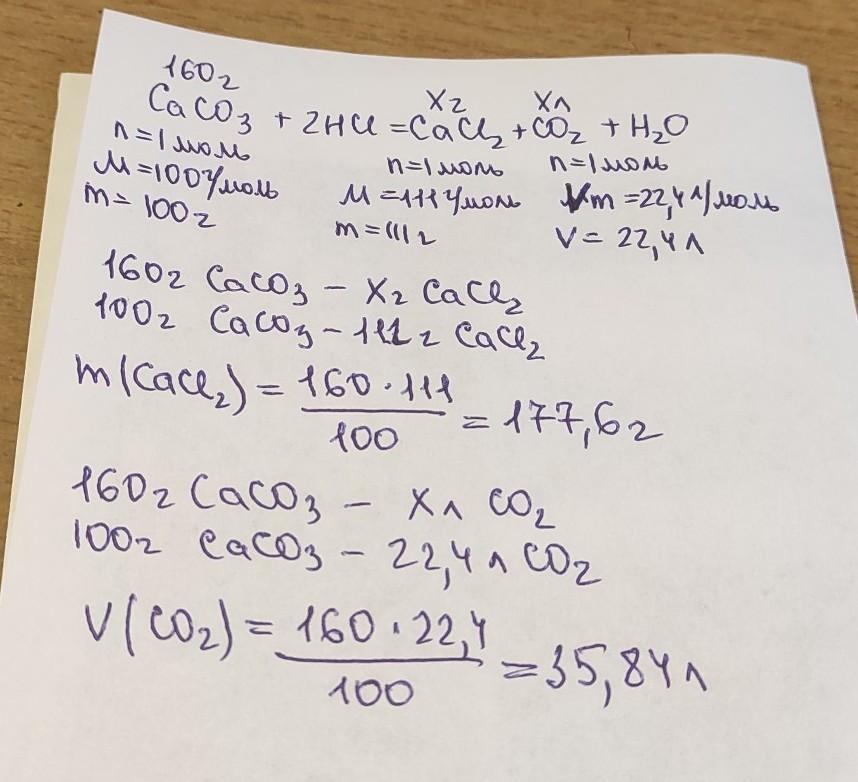 160г
Xг Xл
CaCO₃ + 2HCl = CaCl₂ + CO₂ + H₂O
n = 1 моль n = 1 моль n = 1 моль
M = 100 г/моль M = 111 г/моль Vm = 22,4 л/моль
m = 100г m = 111г V = 22,4 л
160г CaCO₃ – Xг CaCl₂
100г CaCO₃ – 111г CaCl₂
m(CaCl₂) = 160 · 111 / 100 = 177,6г
160г CaCO₃ – Xл CO₂
100г CaCO₃ – 22,4л CO₂
V(CO₂) = 160 · 22,4 / 100 = 35,84л